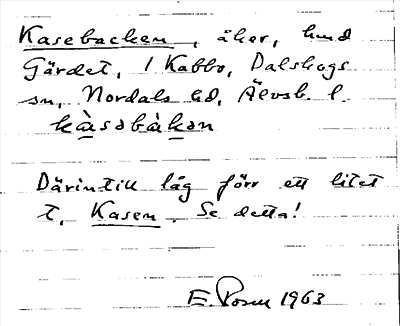 Kasebacken, åker, hmd
Gärdet, 1 Kabbo, Dalskogs
sn, Nordals hd, Älvsb. l.
kàsəbàkən
Därintill låg förr ett litet
t. Kasen. Se detta!
E. Posse 1963